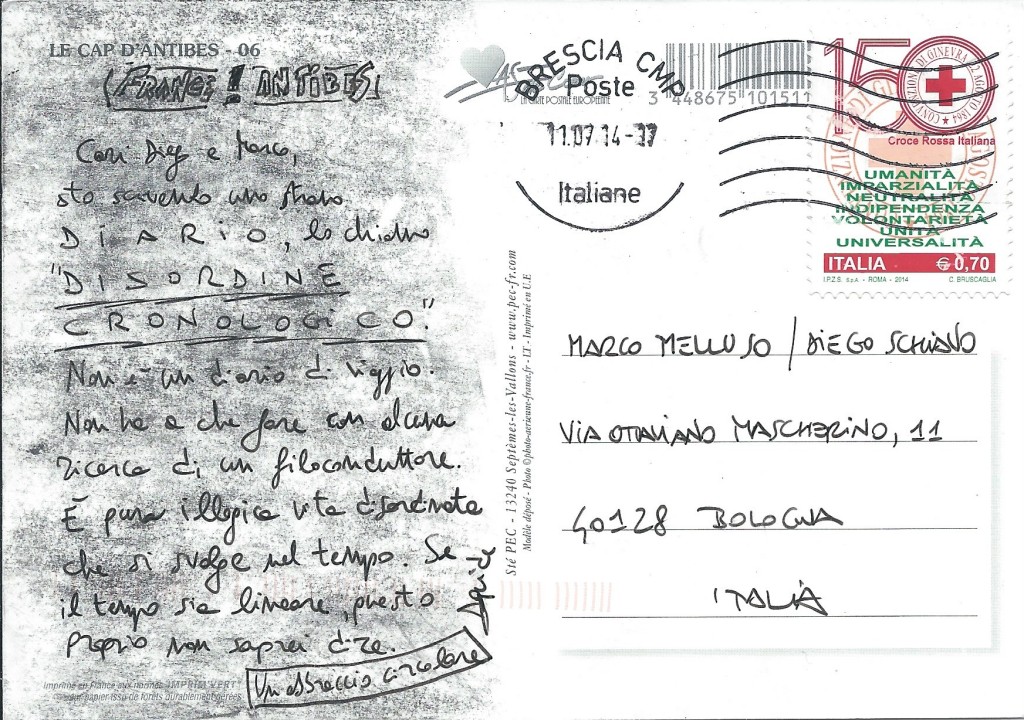 LE CAP D'ANTIBES - 06
(FRANCE! ANTIBES)
Cari Diego e Marco,
sto scrivendo uno strano
DIARIO, lo chiamo
"DISORDINE
CRONOLOGICO".
Non è un diario di viaggio.
Non ha a che fare con alcuna
ricerca di un filoconduttore.
È pura illogica vita disordinata
che si svolge nel tempo. Se
il tempo sia lineare, questo
proprio non saprei dire.
Un abbraccio circolare
Imprimé en France aux normes "IMPRIM'VERT"
papier issu de forêts durablement gérées
Sté PEC - 13240 Septèmes-les-Vallons - www.pec-fr.com
Modèle déposé - Photo ©photo-aerienne-france.fr - I.T - Imprimé en U.E
LA CARTE POSTALE EUROPÉENNE
3 448675 101511
BRESCIA CMP
Poste
11.07.14-17
Italiane
150
CONVENZIONE DI GINEVRA 22 AGOSTO 1864
Croce Rossa Italiana
UMANITÀ
IMPARZIALITÀ
NEUTRALITÀ
INDIPENDENZA
VOLONTARIETÀ
UNITÀ
UNIVERSALITÀ
ITALIA € 0,70
I.P.Z.S. S.p.A. - ROMA - 2014 C. BRUSCAGLIA
MARCO MELLUSO / DIEGO SCHIANO
VIA OTTAVIANO MASCHERINO, 11
40128 BOLOGNA
ITALIA